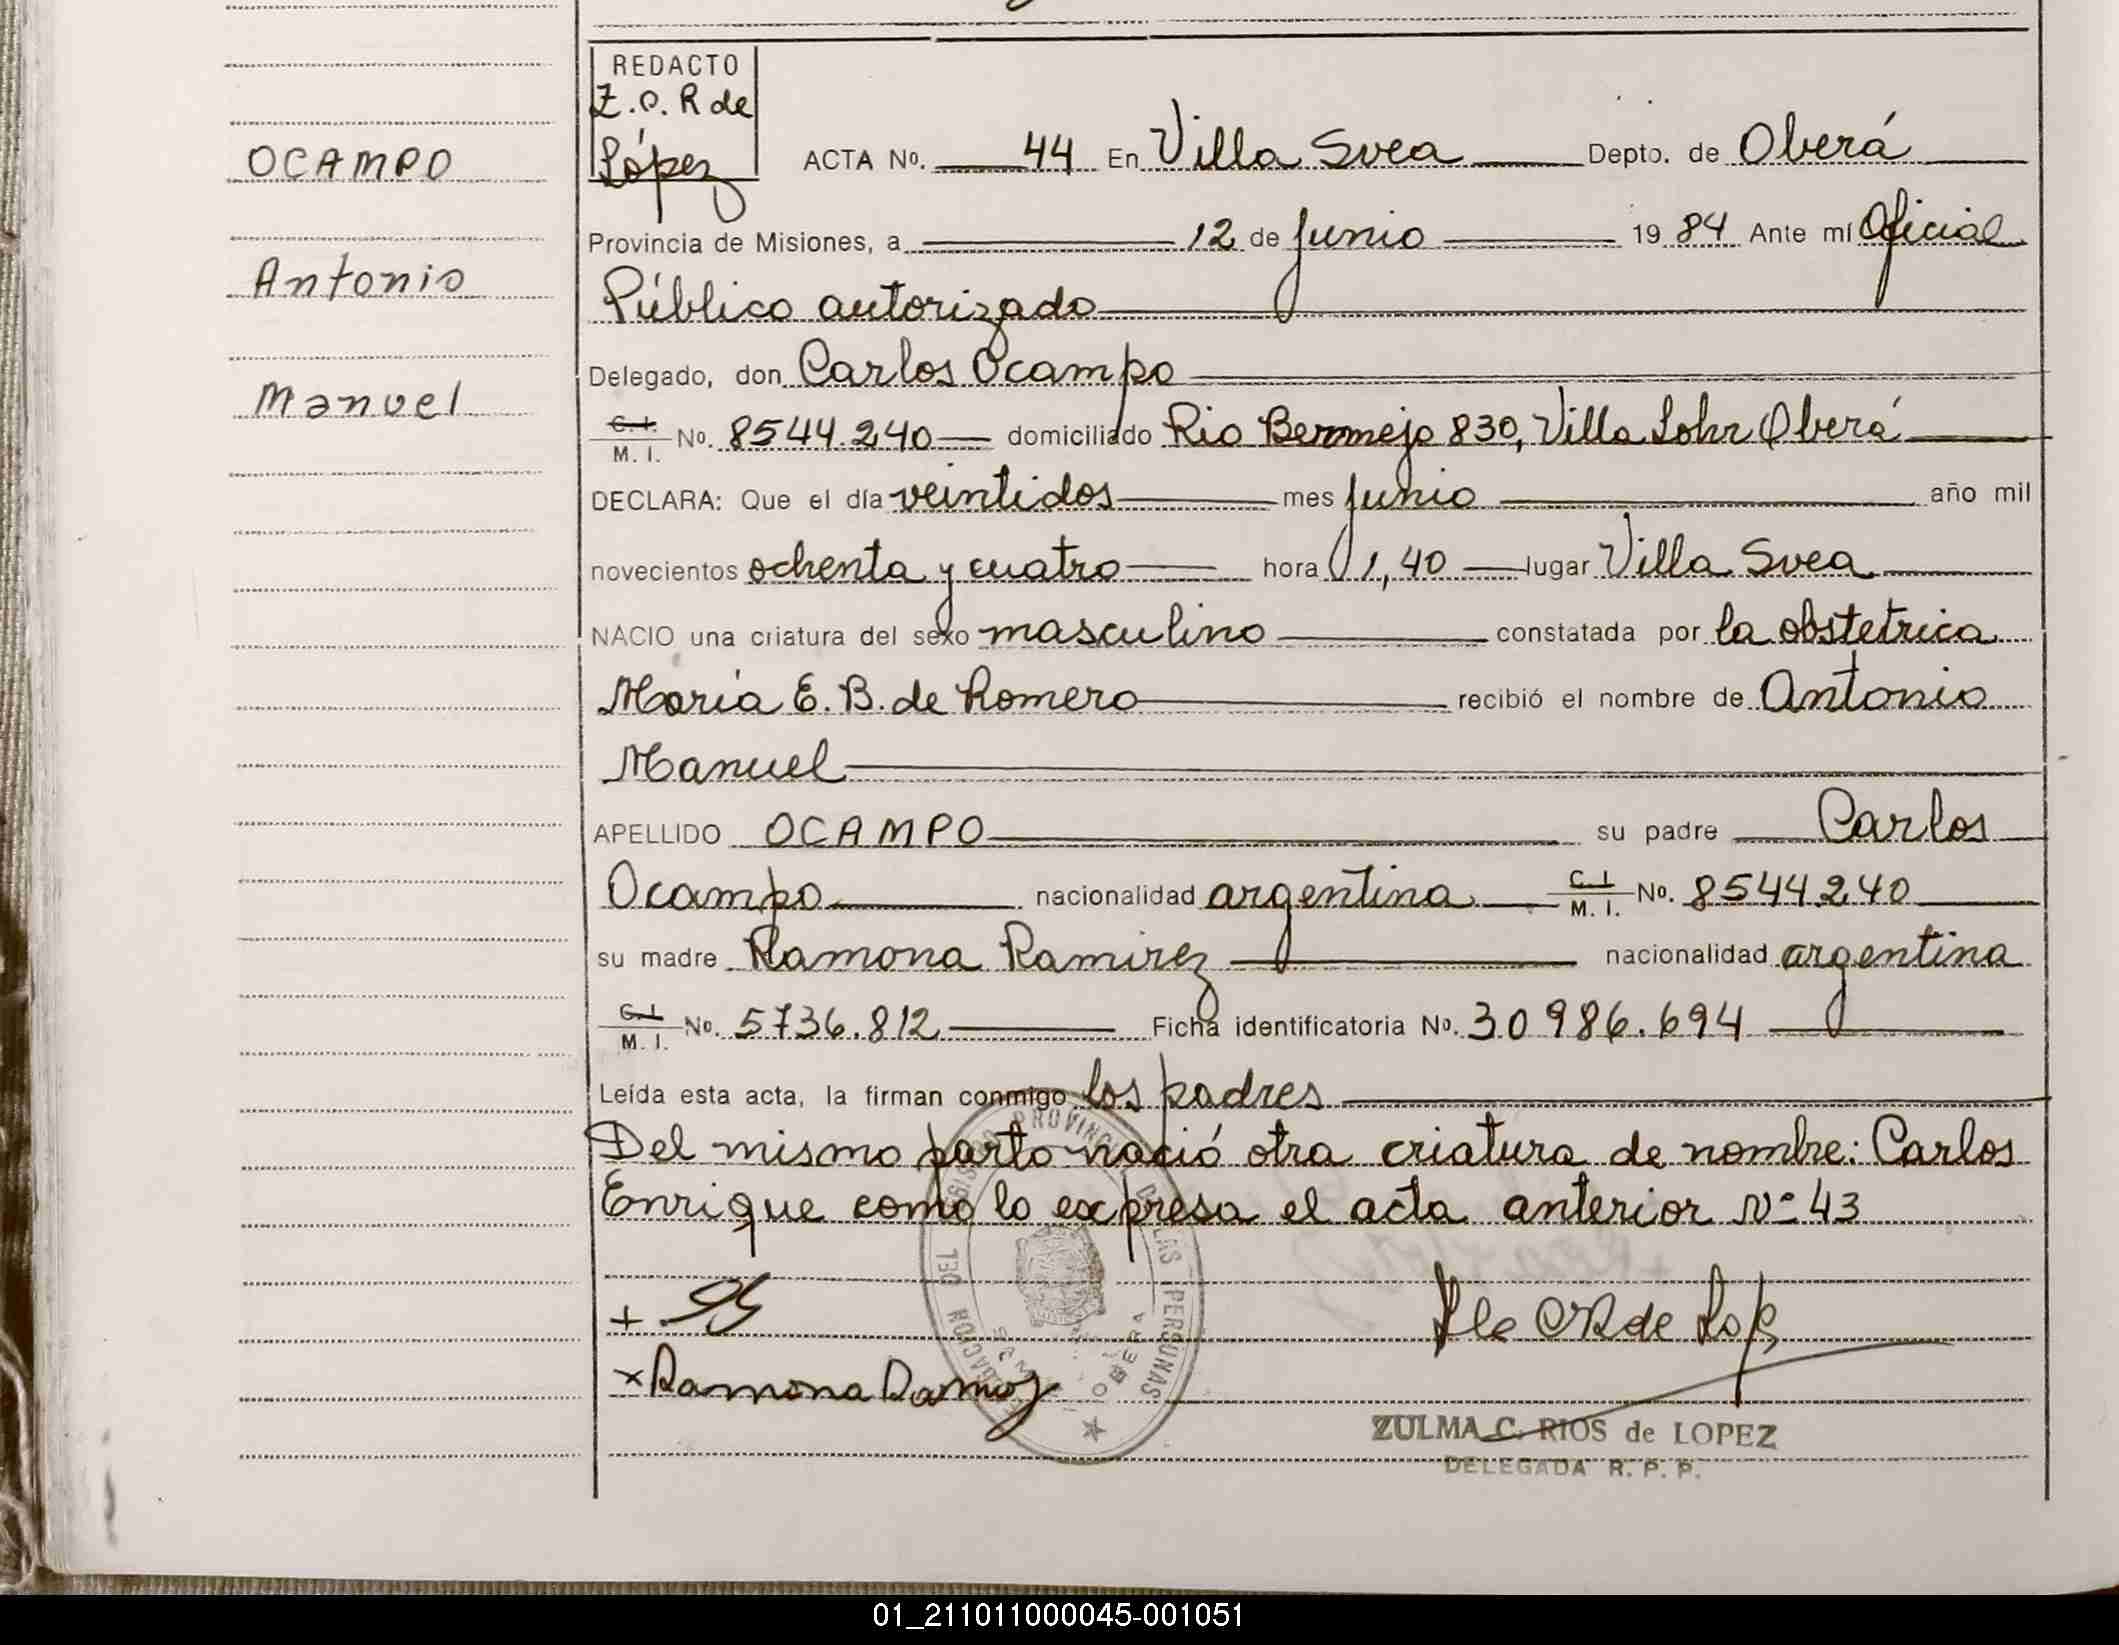 REDACTO
Z.C.R de
López
ACTA No. 44 En Villa Svea Depto. de Oberá
OCAMPO
Provincia de Misiones, a 12 de Junio 1984 Ante mí Oficial
Antonio
Público autorizado
Delegado, don Carlos Ocampo
Manuel
C.I. M.I. No. 8544.240 domiciliado Rio Bermejo 830, Villa Lohr Oberá
DECLARA: Que el día veintidos mes Junio año mil
novecientos ochenta y cuatro hora 1,40 lugar Villa Svea
NACIO una criatura del sexo masculino constatada por la obstetrica
María E. B. de Romero recibió el nombre de Antonio
Manuel
APELLIDO OCAMPO su padre Carlos
Ocampo nacionalidad argentina C.I. M.I. No. 8544240
su madre Ramona Ramirez nacionalidad argentina
C.I. M.I. No. 5736.812 Ficha identificatoria No. 30986.694
Leída esta acta, la firman conmigo los padres
Del mismo parto nació otra criatura de nombre: Carlos
Enrique como lo expresa el acta anterior Nº 43
REGISTRO PROVINCIAL DE LAS PERSONAS
OBERA
x Ramona
ZULMA C. RIOS de LOPEZ
DELEGADA R. P. P.
01_211011000045-001051